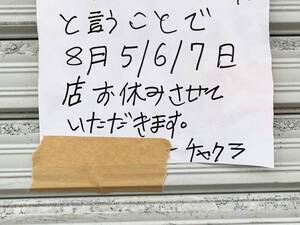 と言うことで
8月5/6/7日
店お休みさせて
いただきます。
ーチャクラ